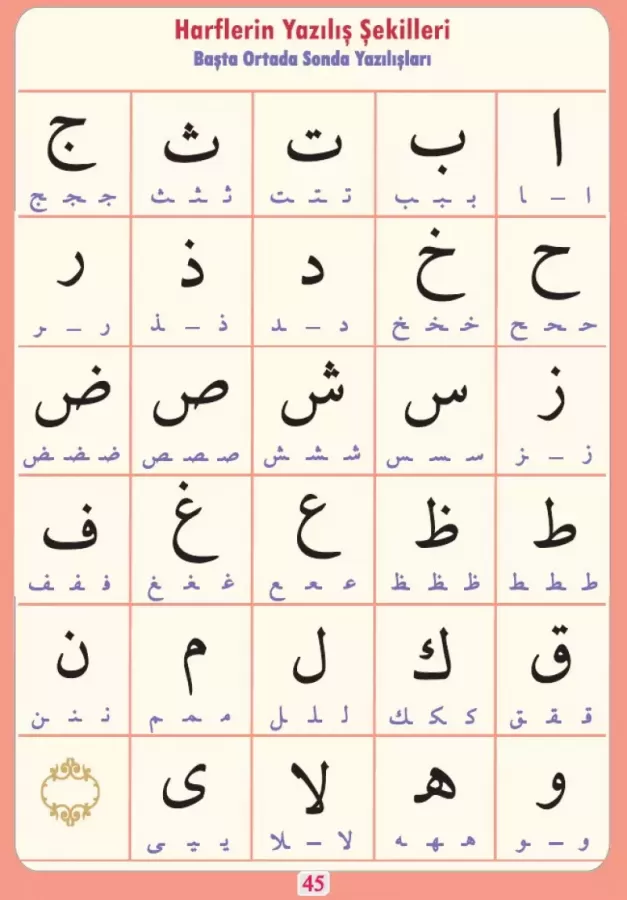 Harflerin Yazılış Şekilleri
Başta Ortada Sonda Yazılışları
ا ب ت ث ج
ا – ـا بـ ـبـ ـب تـ ـتـ ـت ثـ ـثـ ـث جـ ـجـ ـج
ح خ د ذ ر
حـ ـحـ ـح خـ ـخـ ـخ د – ـد ذ – ـذ ر – ـر
ز س ش ص ض
ز – ـز سـ ـسـ ـس شـ ـشـ ـش صـ ـصـ ـص ضـ ـضـ ـض
ط ظ ع غ ف
طـ ـطـ ـط ظـ ـظـ ـظ عـ ـعـ ـع غـ ـغـ ـغ فـ ـفـ ـف
ق ك ل م ن
قـ ـقـ ـق كـ ـكـ ـك لـ ـلـ ـل مـ ـمـ ـم نـ ـنـ ـن
و هـ لا ى
و – ـو هـ ـهـ ـه لا – ـلا يـ ـيـ ـى
45